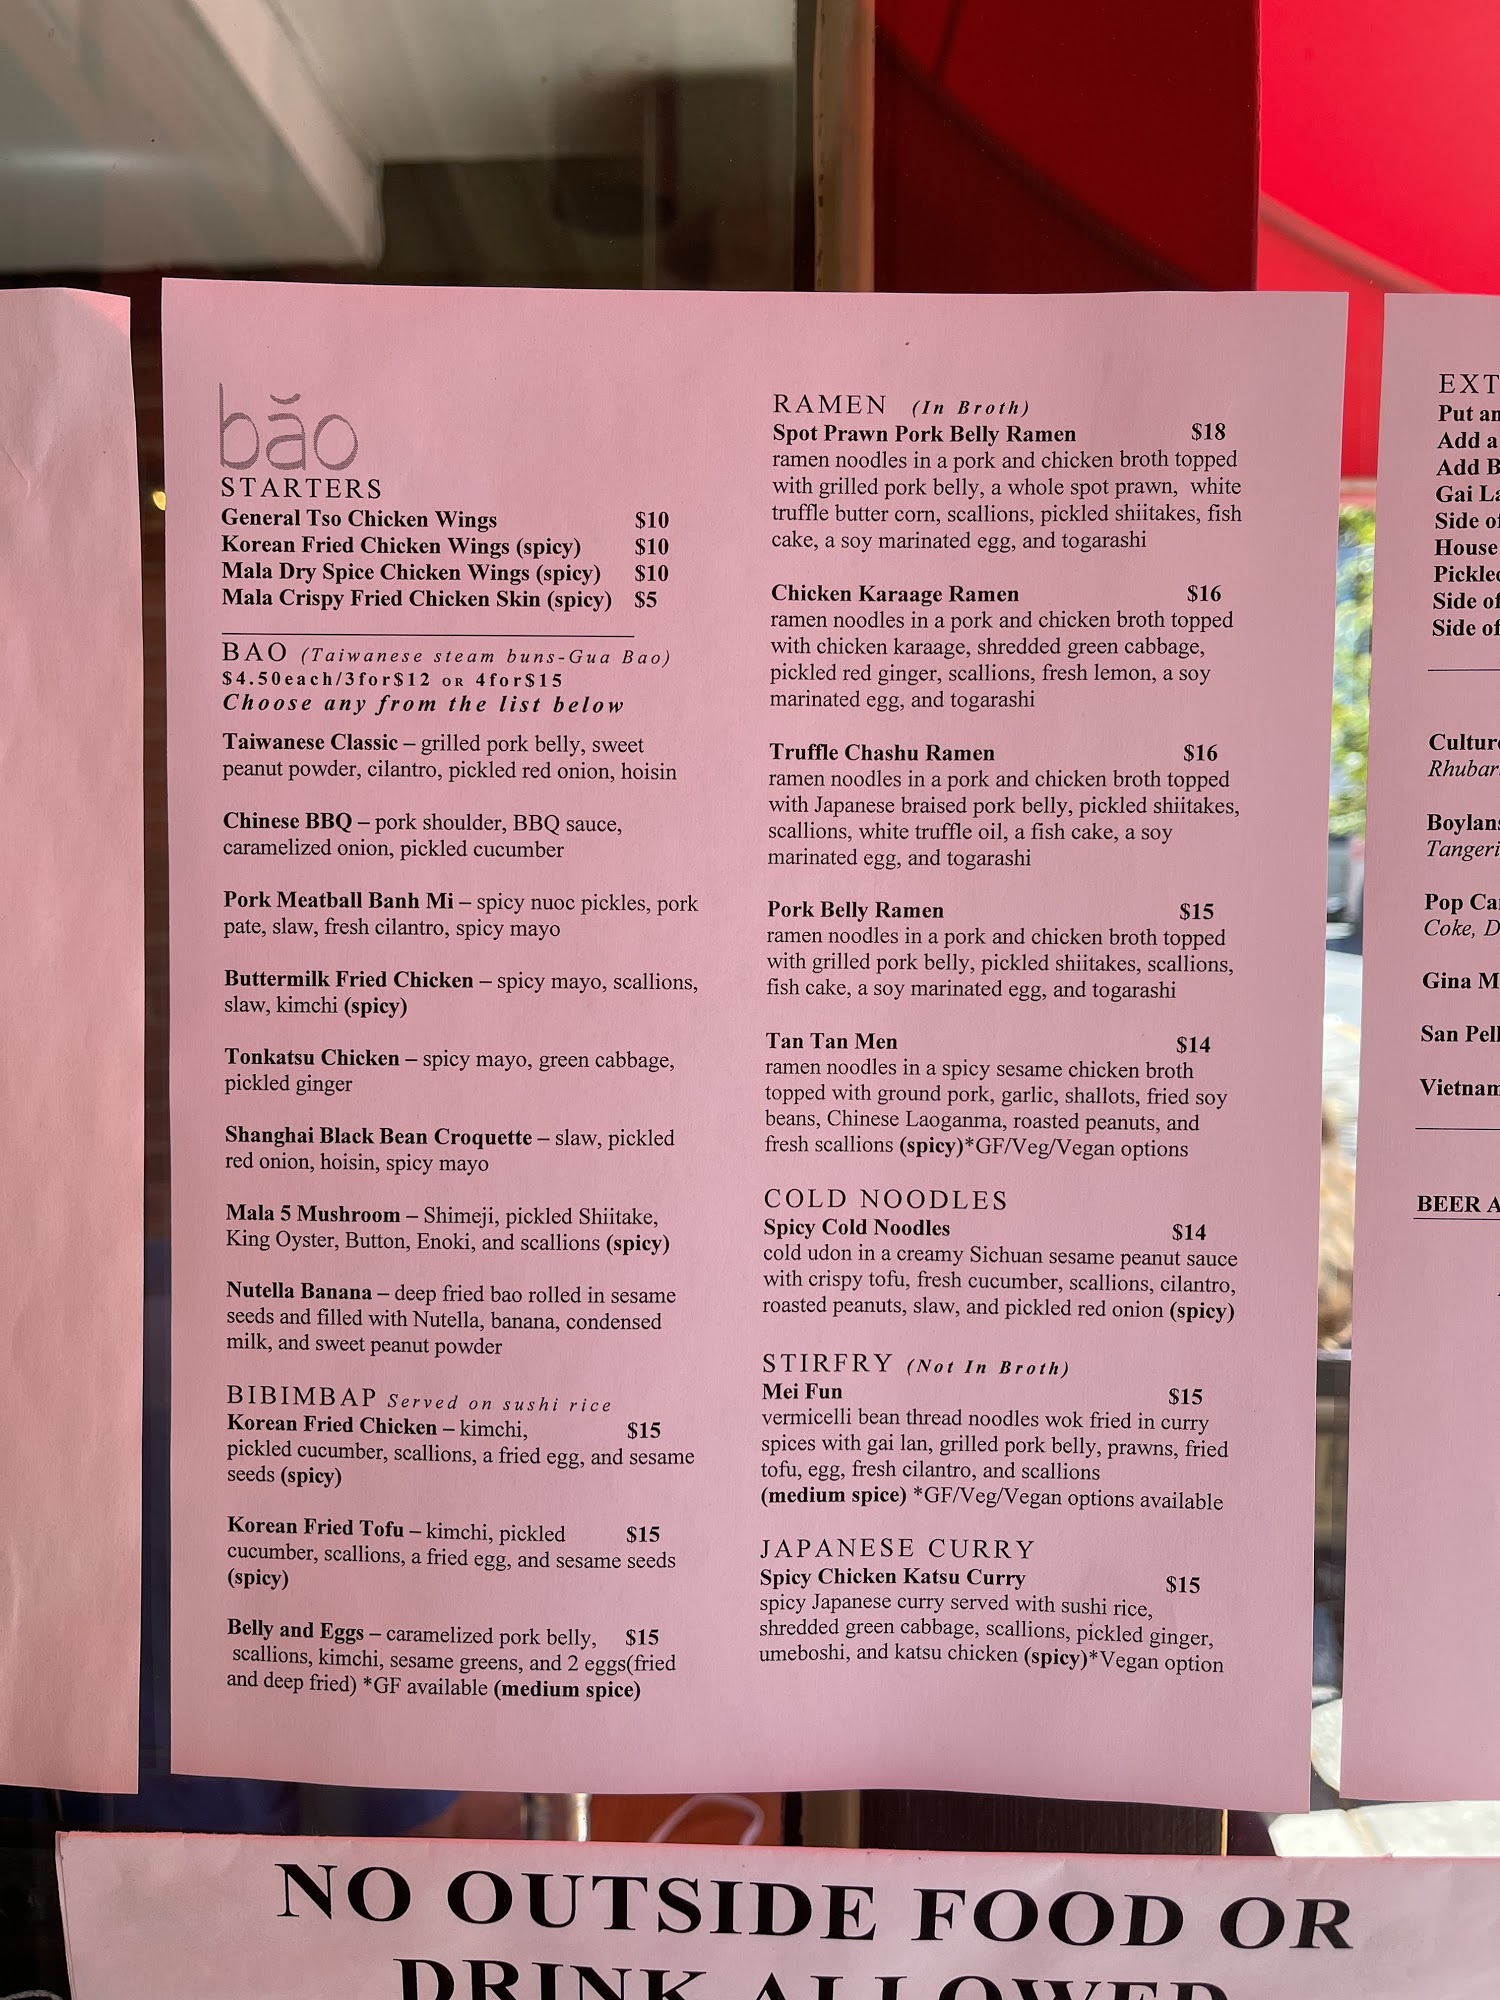 băo
STARTERS
General Tso Chicken Wings $10
Korean Fried Chicken Wings (spicy) $10
Mala Dry Spice Chicken Wings (spicy) $10
Mala Crispy Fried Chicken Skin (spicy) $5
BAO (Taiwanese steam buns-Gua Bao)
$4.50each/3for$12 OR 4for$15
Choose any from the list below
Taiwanese Classic – grilled pork belly, sweet
peanut powder, cilantro, pickled red onion, hoisin
Chinese BBQ – pork shoulder, BBQ sauce,
caramelized onion, pickled cucumber
Pork Meatball Banh Mi – spicy nuoc pickles, pork
pate, slaw, fresh cilantro, spicy mayo
Buttermilk Fried Chicken – spicy mayo, scallions,
slaw, kimchi (spicy)
Tonkatsu Chicken – spicy mayo, green cabbage,
pickled ginger
Shanghai Black Bean Croquette – slaw, pickled
red onion, hoisin, spicy mayo
Mala 5 Mushroom – Shimeji, pickled Shiitake,
King Oyster, Button, Enoki, and scallions (spicy)
Nutella Banana – deep fried bao rolled in sesame
seeds and filled with Nutella, banana, condensed
milk, and sweet peanut powder
BIBIMBAP Served on sushi rice
Korean Fried Chicken – kimchi, $15
pickled cucumber, scallions, a fried egg, and sesame
seeds (spicy)
Korean Fried Tofu – kimchi, pickled $15
cucumber, scallions, a fried egg, and sesame seeds
(spicy)
Belly and Eggs – caramelized pork belly, $15
scallions, kimchi, sesame greens, and 2 eggs(fried
and deep fried) *GF available (medium spice)
RAMEN (In Broth)
Spot Prawn Pork Belly Ramen $18
ramen noodles in a pork and chicken broth topped
with grilled pork belly, a whole spot prawn, white
truffle butter corn, scallions, pickled shiitakes, fish
cake, a soy marinated egg, and togarashi
Chicken Karaage Ramen $16
ramen noodles in a pork and chicken broth topped
with chicken karaage, shredded green cabbage,
pickled red ginger, scallions, fresh lemon, a soy
marinated egg, and togarashi
Truffle Chashu Ramen $16
ramen noodles in a pork and chicken broth topped
with Japanese braised pork belly, pickled shiitakes,
scallions, white truffle oil, a fish cake, a soy
marinated egg, and togarashi
Pork Belly Ramen $15
ramen noodles in a pork and chicken broth topped
with grilled pork belly, pickled shiitakes, scallions,
fish cake, a soy marinated egg, and togarashi
Tan Tan Men $14
ramen noodles in a spicy sesame chicken broth
topped with ground pork, garlic, shallots, fried soy
beans, Chinese Laoganma, roasted peanuts, and
fresh scallions (spicy)*GF/Veg/Vegan options
COLD NOODLES
Spicy Cold Noodles $14
cold udon in a creamy Sichuan sesame peanut sauce
with crispy tofu, fresh cucumber, scallions, cilantro,
roasted peanuts, slaw, and pickled red onion (spicy)
STIRFRY (Not In Broth)
Mei Fun $15
vermicelli bean thread noodles wok fried in curry
spices with gai lan, grilled pork belly, prawns, fried
tofu, egg, fresh cilantro, and scallions
(medium spice) *GF/Veg/Vegan options available
JAPANESE CURRY
Spicy Chicken Katsu Curry $15
spicy Japanese curry served with sushi rice,
shredded green cabbage, scallions, pickled ginger,
umeboshi, and katsu chicken (spicy)*Vegan option
EXT
Put an
Add a
Add B
Gai La
Side of
House
Pickled
Side of
Side of
Culture
Rhubar
Boylans
Tangeri
Pop Ca
Coke, D
Gina M
San Pell
Vietnam
BEER A
NO OUTSIDE FOOD OR
DRINK ALLOWED